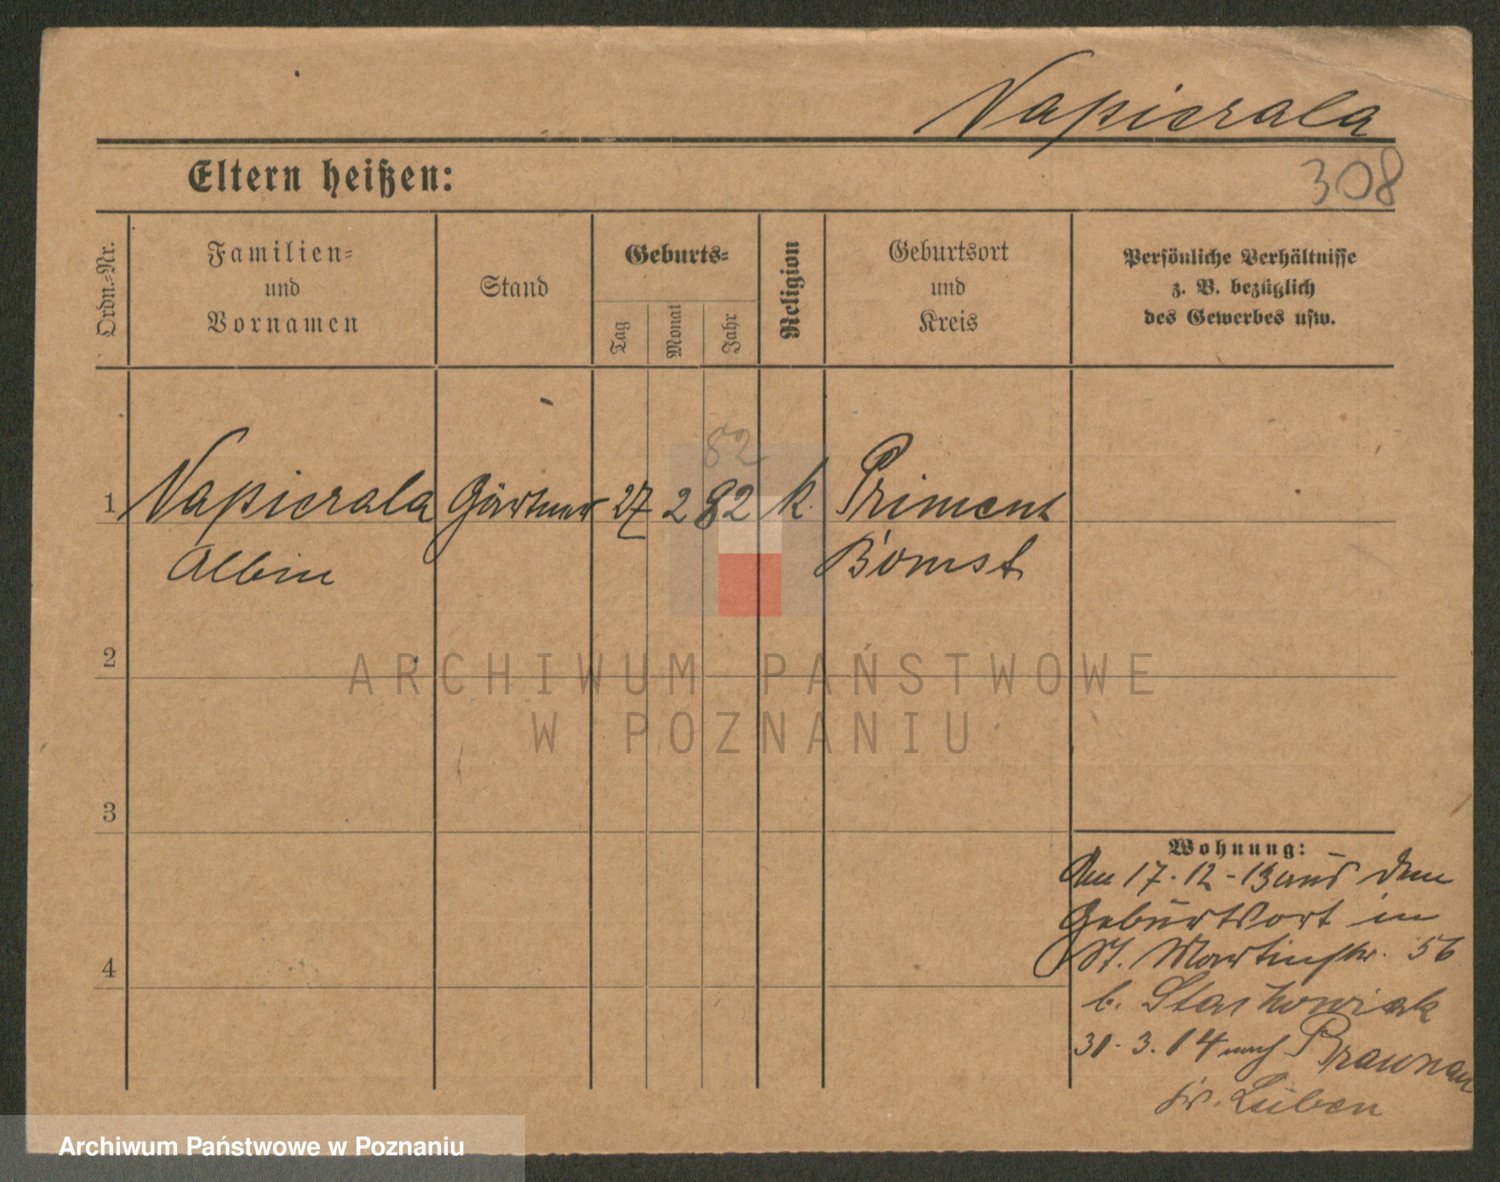 Napierala
308
Eltern heißen:
Ordn.-Nr.
Familien-
und
Vornamen
Stand
Geburts-
Tag
Monat
Jahr
Religion
Geburtsort
und
Kreis
Persönliche Verhältnisse
z. B. bezüglich
des Gewerbes usw.
82
1 Napierala Gärtner 27 2 82 k. Priment
Albin Bomst
2
ARCHIWUM PAŃSTWOWE
W POZNANIU
3
Wohnung:
Den 17.12-13 aus dem
Geburtsort in
St. Martinstr. 56
b. Stachowiak
4
31.3.14 nach Braunau
Kr. Lüben
Archiwum Państwowe w Poznaniu